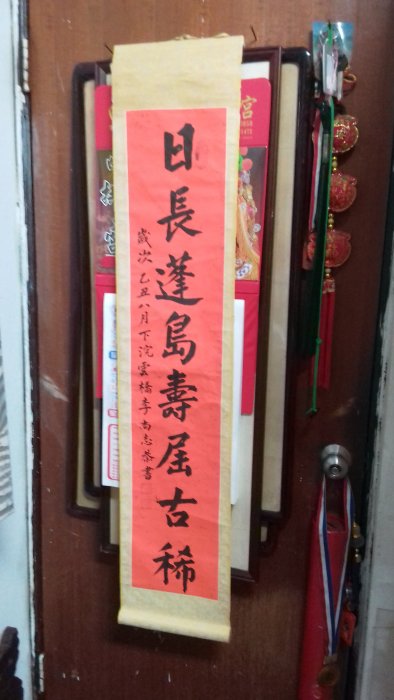 日長蓬島壽屆古稀
歲次乙丑八月下浣雲橋李尚志恭書
宮